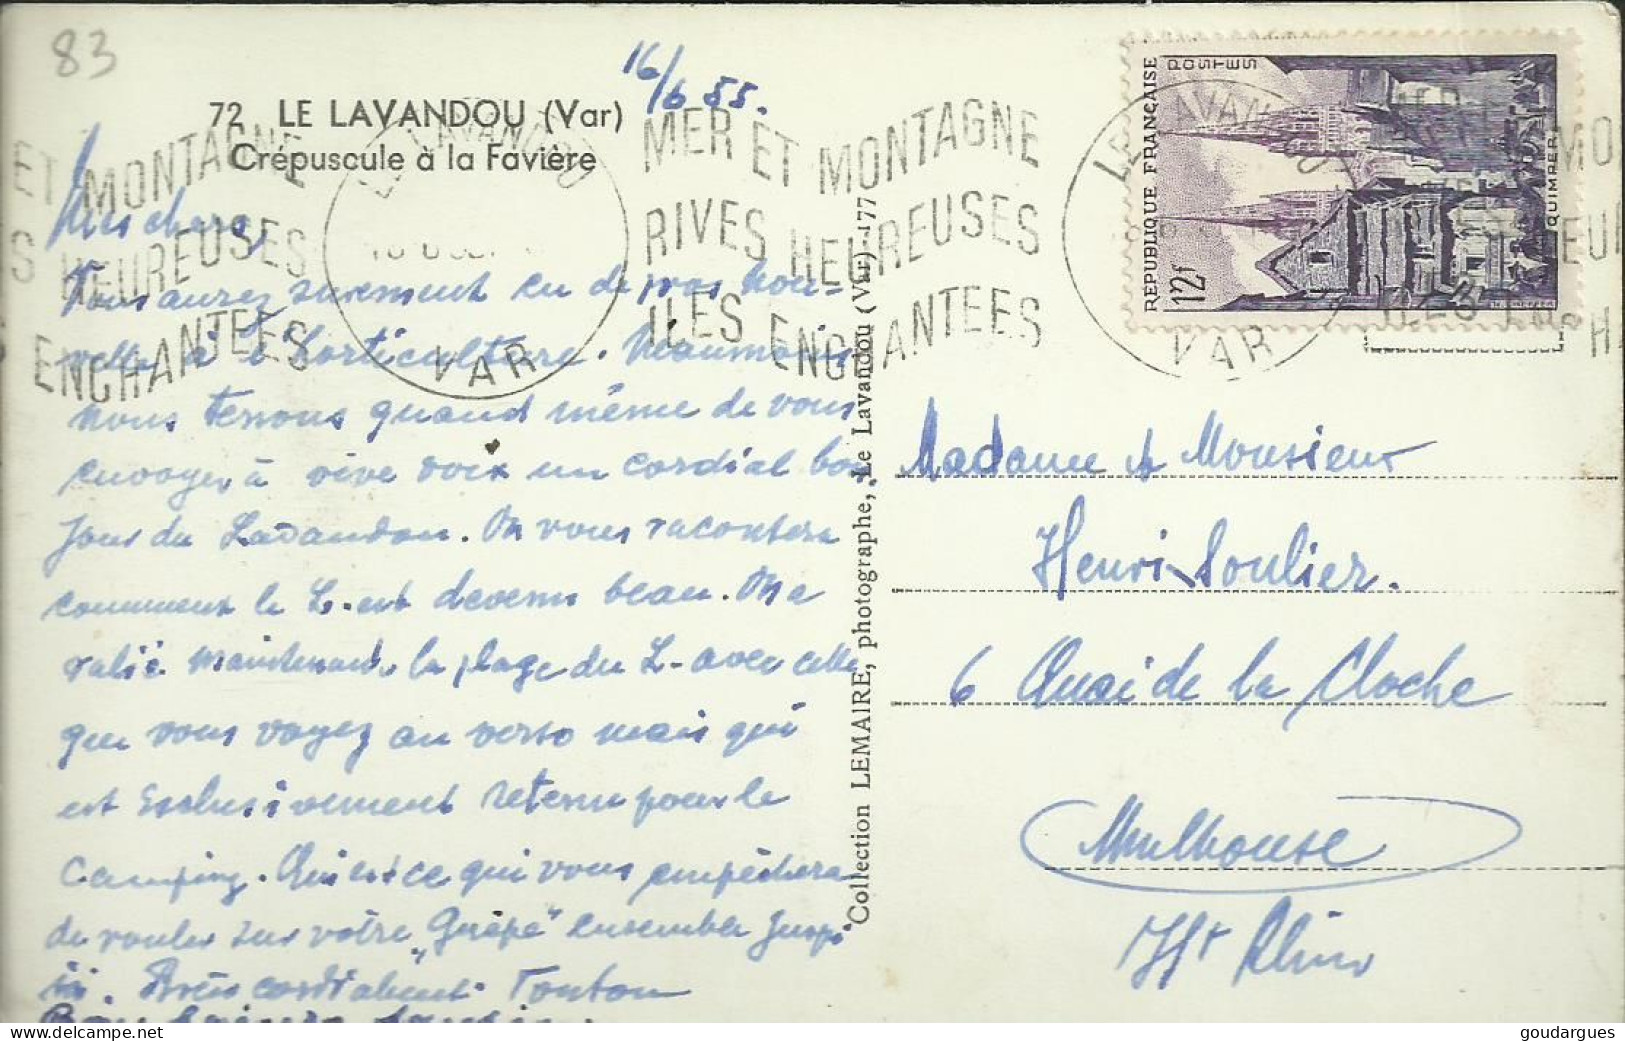 83
16/6 55.
72 LE LAVANDOU (Var)
Crépuscule à la Favière
MER ET MONTAGNE
RIVES HEUREUSES
ILES ENCHANTEES
ET MONTAGNE
S HEUREUSES
ENCHANTEES
LE LAVANDOU
VAR
LE LAVANDOU
VAR
REPUBLIQUE FRANÇAISE
POSTES
12f
QUIMPER
Mes chers,
Vous aurez surement eu de nos nou-
velles à l'Horticulture. Néanmoins
nous tenons quand même de vous
envoyer à vive voix un cordial bon
jour du Lavandou. On vous racontera
comment le L. est devenu beau. On a
relié maintenant la plage du L. avec celle
que vous voyez au verso mais qui
est exclusivement retenu pour le
camping. Qui est ce qui vous empêchera
de rouler sur votre „Guêpe" ensemble jusqu'
ici. Très cordialement Tonton
Collection LEMAIRE, photographe, Le Lavandou (Var) -177
Madame et Monsieur
Henri Soulier.
6 Quai de la Cloche
Mulhouse
Ht Rhin
goudargues